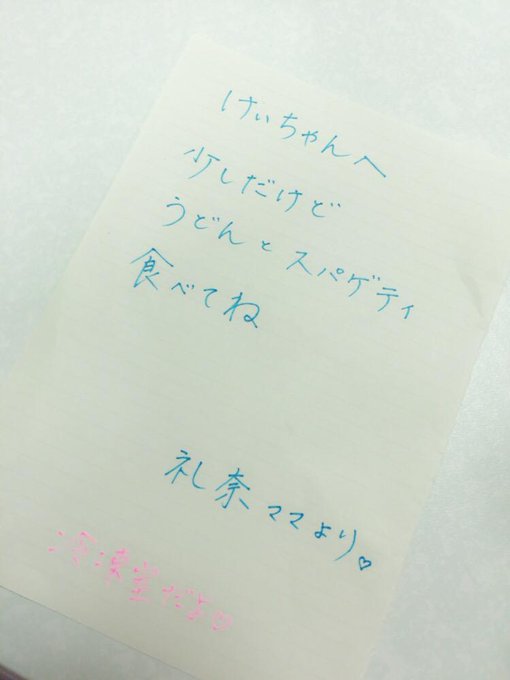 けいちゃんへ
少しだけど
うどんとスパゲティ
食べてね
礼奈ママより♡
冷凍室だよ♡